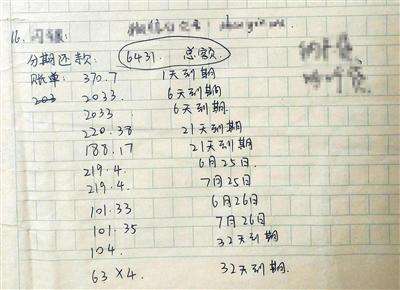 16.
分期还款: 6431 总额
账单: 370.7 1天到期
203 2033. 6天到期
2033 6天到期.
220.38 21天到期
188.17 21天到期
219.4. 6月25日.
219.4. 7月25日
101.33 6月26日
101.35 7月26日
104. 32天到期
63×4. 32天到期.